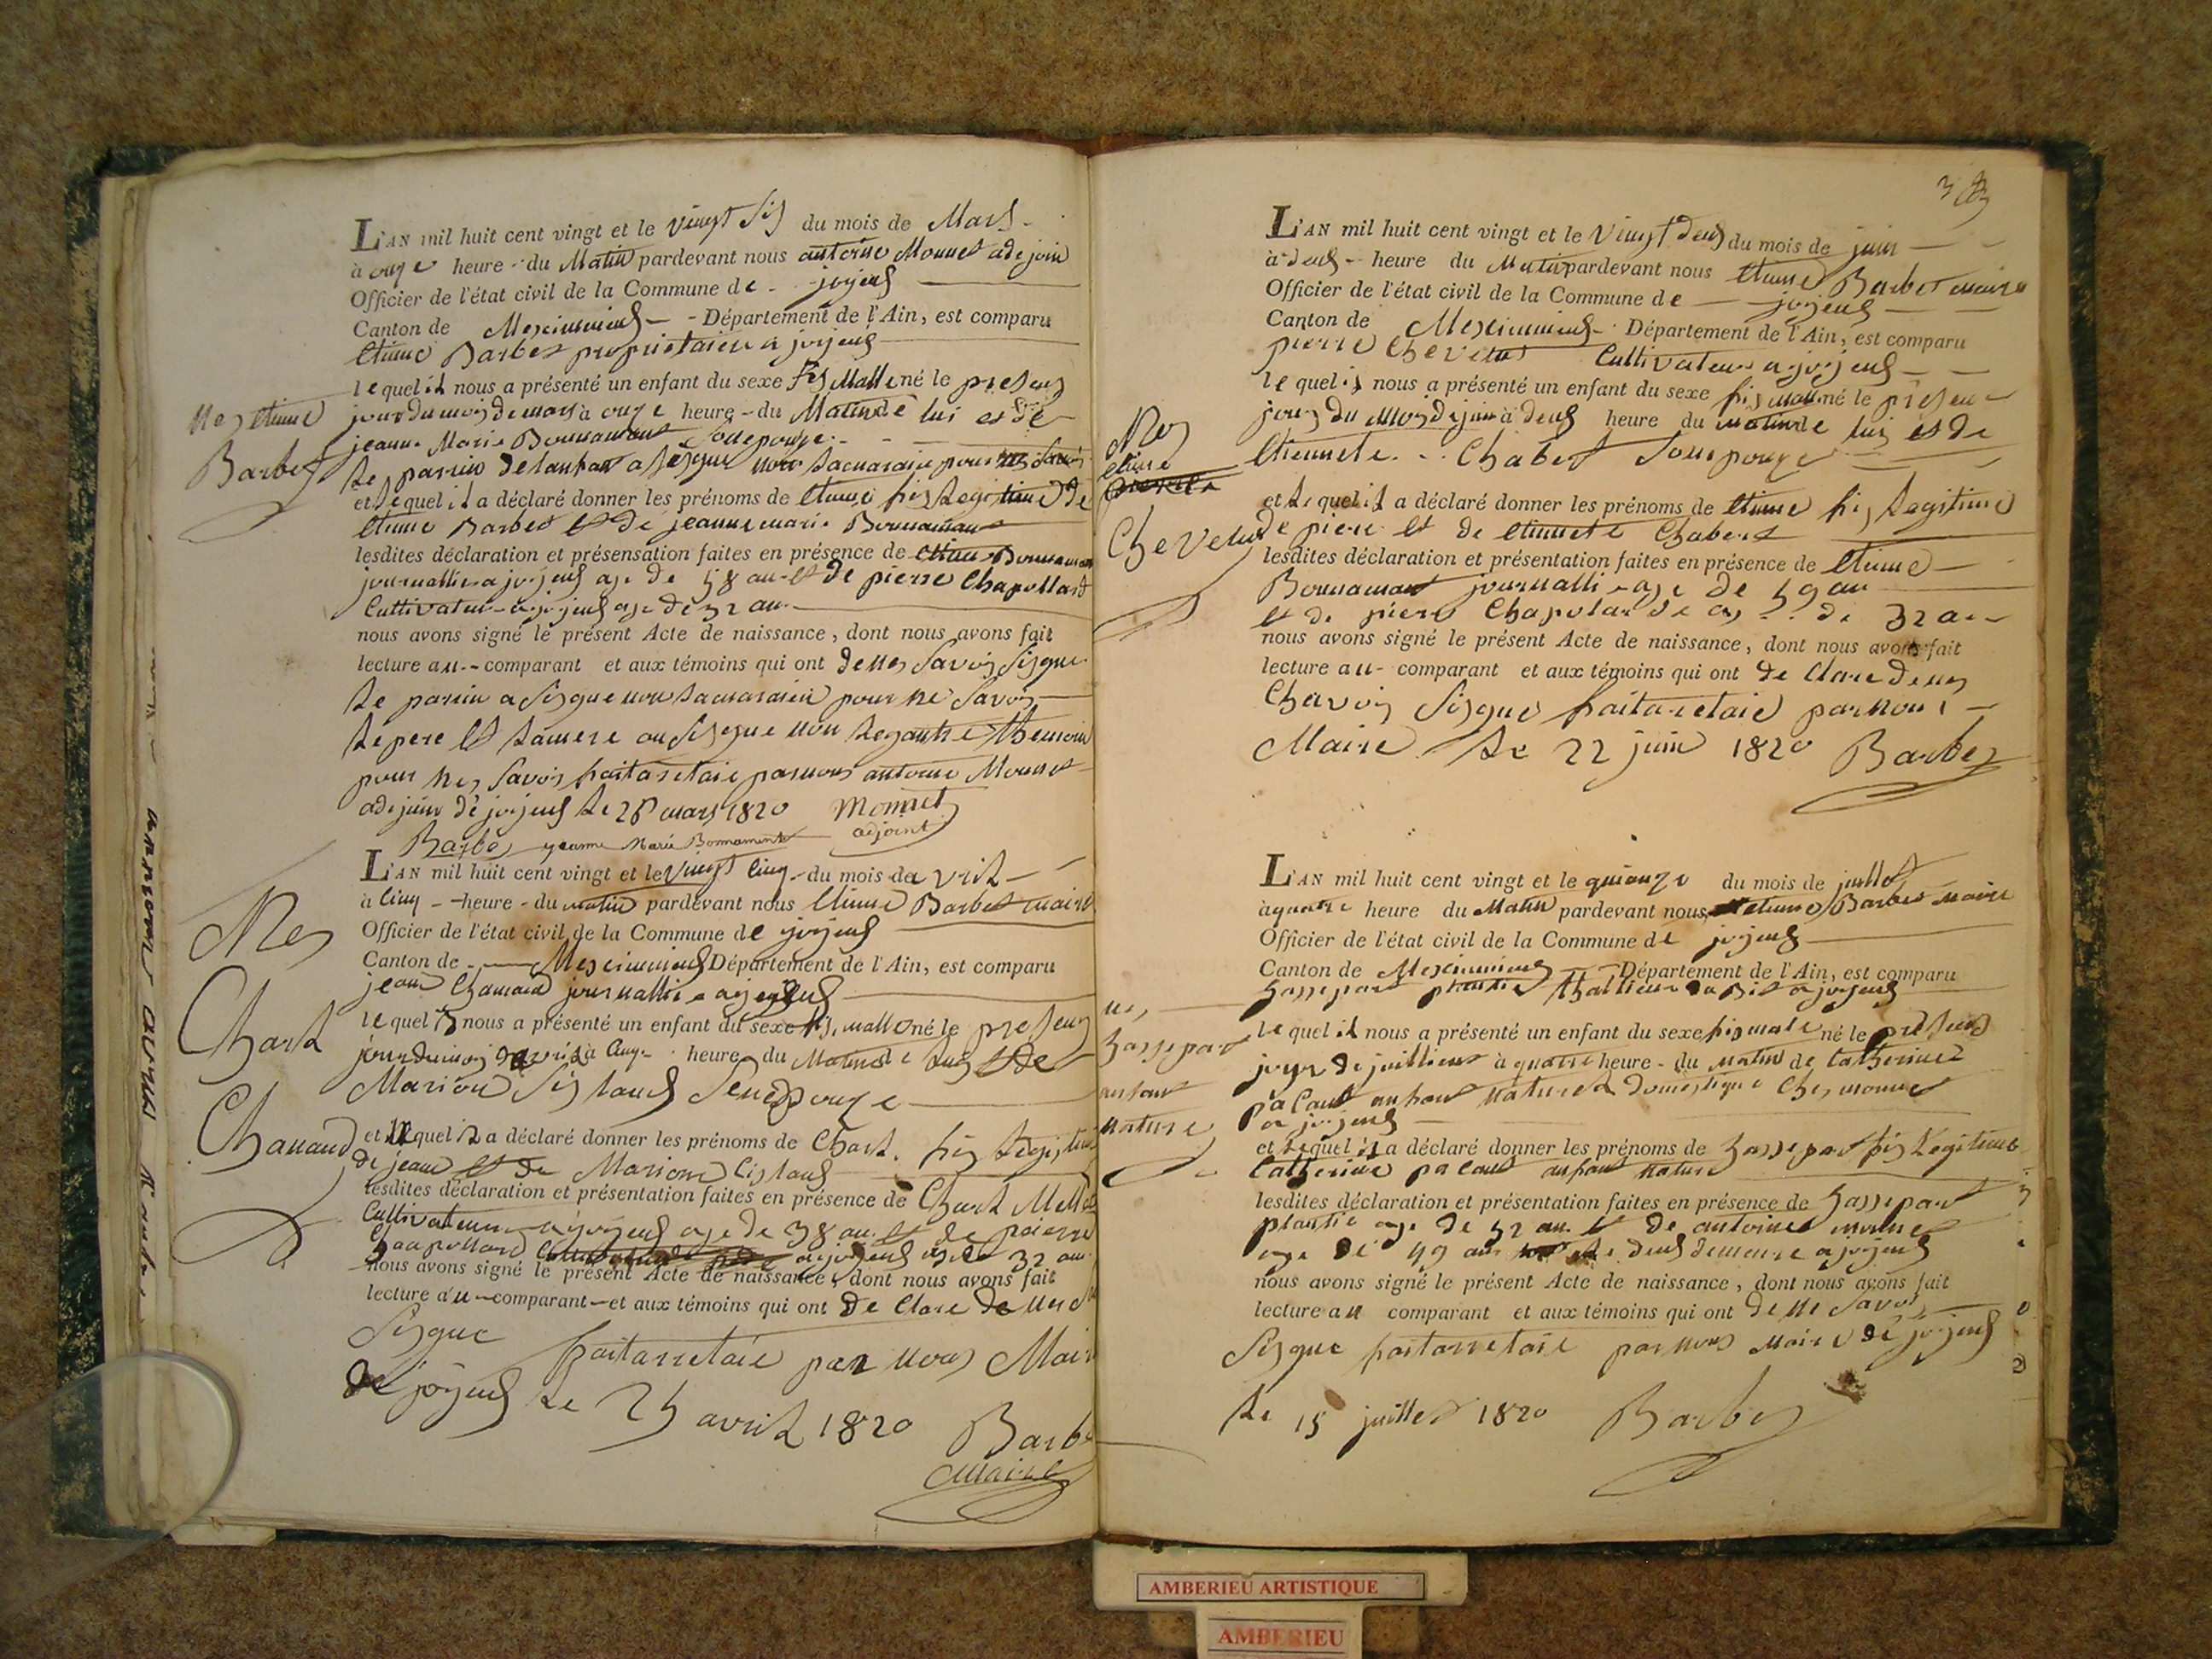 L'AN mil huit cent vingt et le vingt sis du mois de Mars
à onze heure du Matin pardevant nous antoine Monnet adejoin
Officier de l'état civil de la Commune de joyeus
Canton de Meximieus Département de l'Ain, est comparu
Etienne Barbet proprietaiere a joyeus
lequel il nous a présenté un enfant du sexe fis Malle né le presens
jour du mois de mars à onze heure du Matin de lui et de
jeanne Marie Bonnamant son epouze
Le parrin de lanfant a sesgue non la maraine pour ne savoir
et lequel il a déclaré donner les prénoms de etienne fis legitime de
etienne Barbet et de jeanne marie Bonnamant
lesdites déclaration et présensation faites en présence de etienne Bonnamant
journallie a joyeus age de 58 an et de pierre Chapollard
Cultivateur a joyeus age de 32 an
nous avons signé le présent Acte de naissance, dont nous avons fait
lecture au comparant et aux témoins qui ont de nes savoir sisgne
Le parrin a sisgue non la maraine pour ne savoir
Le pere et la mere on sisegue non les autre themoin
pour nes savoir fait arretaie par nous antoine Monnet
adejoin de joyeus le 26 mars 1820 Monnet
adjoint
Barbet jeanne Marie Bonnamant
Nes etienne
Barbet
L'AN mil huit cent vingt et le vingt cinq du mois de avril
à cinq heure du matin pardevant nous etienne Barbet maire
Officier de l'état civil de la Commune de joyeus
Canton de Meximieus Département de l'Ain, est comparu
jean Chanand journallie a joyeus
lequel il nous a présenté un enfant du sexe fis malle né le presens
jour du mois de avril à cinq heure du Matin de lui et de
Marion sislans son epouze
et lequel il a déclaré donner les prénoms de Charl fis legistime
de jean et de Marion sislans
lesdites déclaration et présentation faites en présence de Charl Mellet
Cultivateur a joyeus age de 38 an et de paierre
Chapollard a joyeus age de 32 an
nous avons signé le présent Acte de naissance, dont nous avons fait
lecture au comparant et aux témoins qui ont de clare de nes
sisgue fait arretaie par nous Maire
de joyeus le 25 avril 1820 Barbet
Maire
Nes
Charl
Chanand
L'AN mil huit cent vingt et le vingt deus du mois de juin
à deus heure du Matin pardevant nous etienne Barbet maire
Officier de l'état civil de la Commune de joyeus
Canton de Meximieus Département de l'Ain, est comparu
pierre Chevelus Cultivateur a joyeus
lequel il nous a présenté un enfant du sexe fis malle né le presen
jour du mois de juin à deus heure du matin de lui et de
Etiennete Chabert son epouze
et lequel il a déclaré donner les prénoms de etienne fis legitime
de piere et de etiennete Chabert
lesdites déclaration et présentation faites en présence de etienne
Bonnamant journallie age de 59 an
et de piere Chapolard age de 32 an
nous avons signé le présent Acte de naissance, dont nous avons fait
lecture au comparant et aux témoins qui ont de clare de nes
Chavoir sisgue fait aretaie par nous
Maire le 22 juin 1820 Barbet
Nes
etiene
Chevelus
L'AN mil huit cent vingt et le quinze du mois de juillet
à quatre heure du Matin pardevant nous etienne Barbet maire
Officier de l'état civil de la Commune de joyeus
Canton de Meximieus Département de l'Ain, est comparu
gaspard plantie a joyeus
lequel il nous a présenté un enfant du sexe fis male né le presens
jour de juillient à quatre heure du matin de Catherine
palant anfant naturel domestique Ches monnet
a joyeus
et lequel il a déclaré donner les prénoms de gassepar fis legitime
Catherine palant anfant nature
lesdites déclaration et présentation faites en présence de gassepard
plantie age de 52 an et de antoine monnet
age de 49 ans deus demeure a joyeus
nous avons signé le présent Acte de naissance, dont nous avons fait
lecture au comparant et aux témoins qui ont de ne savoir
sisgue fait arretaie par nous maire de joyeus
le 15 juillet 1820 Barbet
nes
gassepard
anfant
nature
AMBERIEU ARTISTIQUE
AMBERIEU